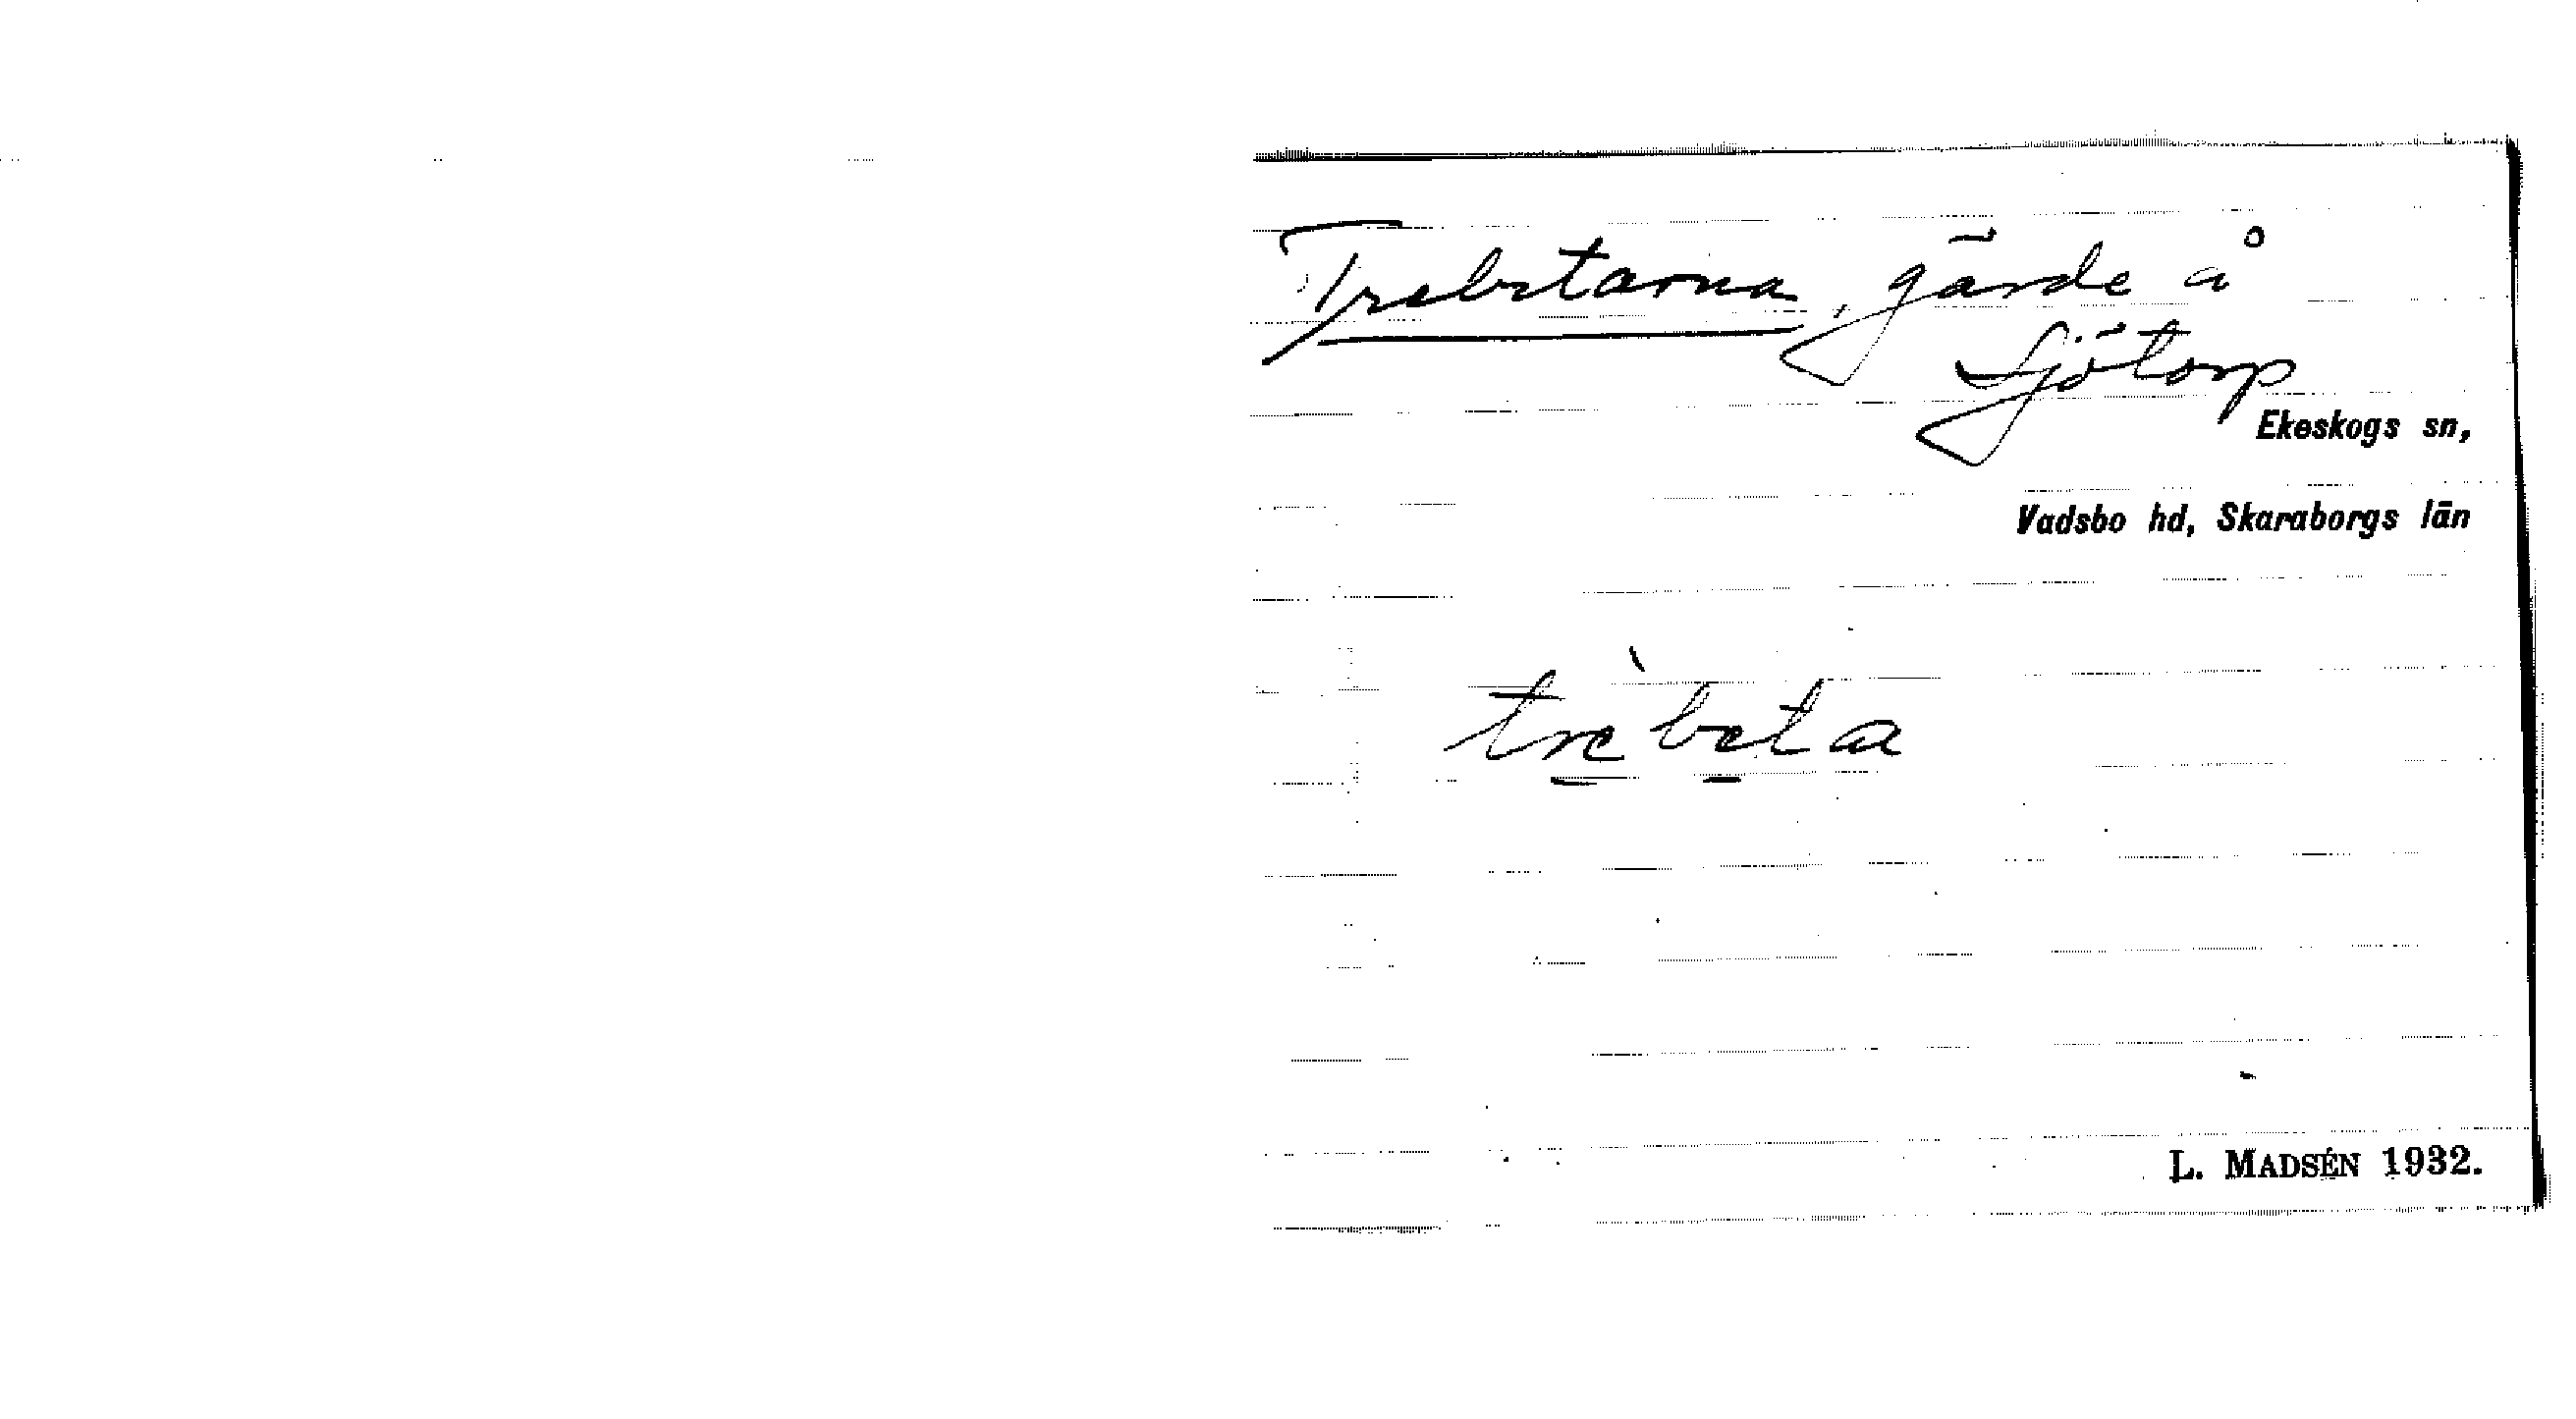 Trebetarna, gärde å
Sjötorp
Ekeskogs sn,
Vadsbo hd, Skaraborgs län
tre`beta
L. MADSÉN 1932.